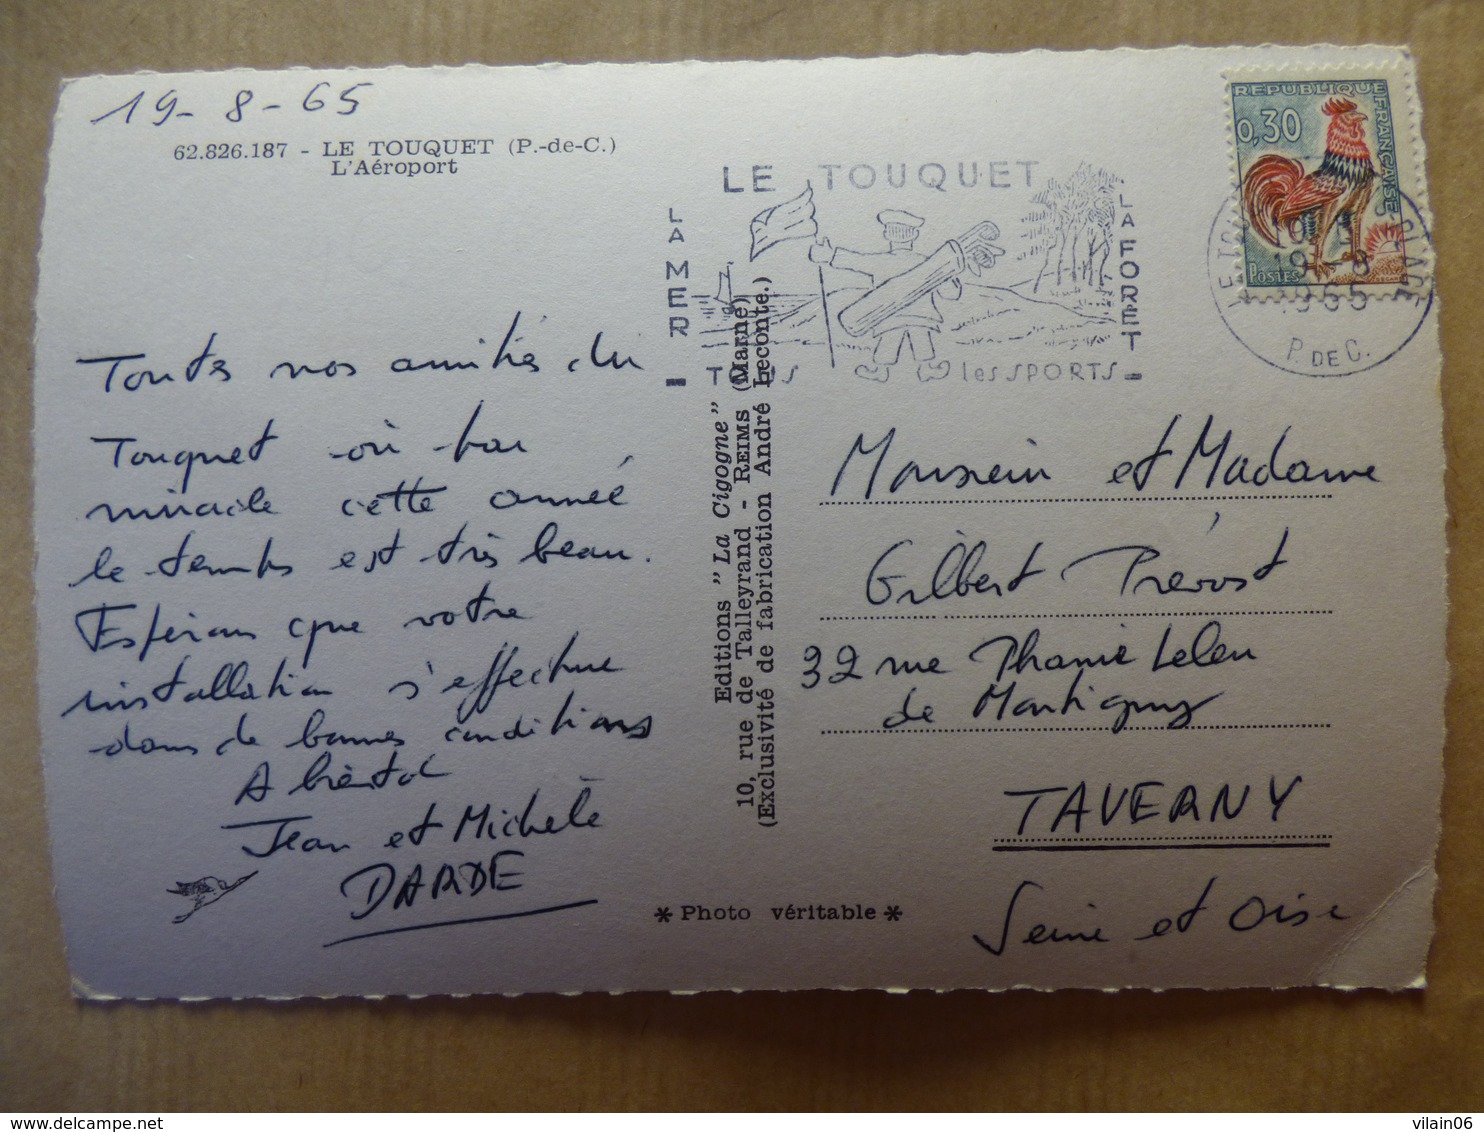 19-8-65
62.826.187 - LE TOUQUET (P.-de-C.)
L'Aéroport
Toutes nos amitiés du
Touquet où par
miracle cette année
le temps est très beau.
Espérons que votre
installation s'effectue
dans de bonnes conditions
A bientôt
Jean et Michèle
DARDE
Editions "La Cigogne"
10, rue de Talleyrand - REIMS (Marne)
(Exclusivité de fabrication André Leconte.)
* Photo véritable *
LE TOUQUET
LA MER
LA FORET
= TOUS les SPORTS =
REPUBLIQUE FRANÇAISE
0,30
POSTES
19-8
1965
P. DE C.
Monsieur et Madame
Gilbert Prévost
32 rue Phanie Leleu
de Martigny
TAVERNY
Seine et Oise
vilain06